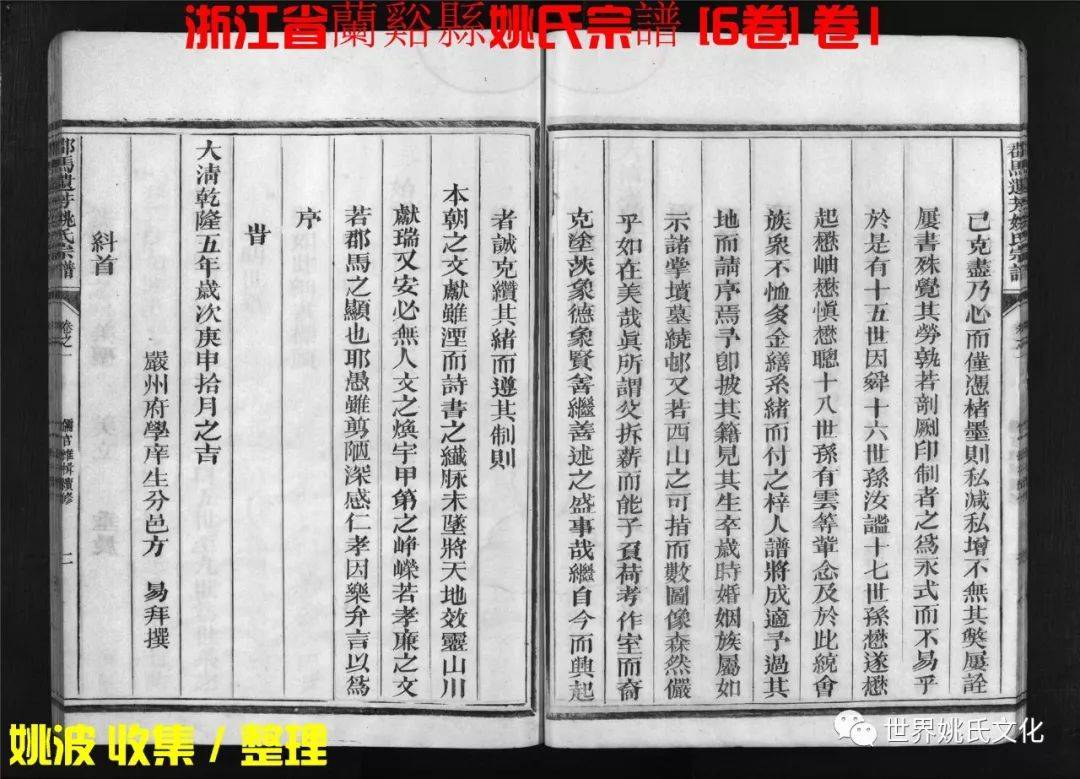 浙江省蘭谿縣姚氏宗譜 [6卷] 卷1
郡馬遺芳姚氏宗譜
己克盡乃心而僅憑楮墨則私減私增不無其獘屢詮
屢書殊覺其勞孰若剞劂印制者之爲永式而不易乎
於是有十五世因舜十六世孫汝謐十七世孫懋遂懋
起懋岫懋愼懋聰十八世孫有雲等輩念及於此統會
族衆不恤多金繕系緒而付之梓人譜將成適予過其
地而請序焉予卽披其籍見其生卒歲時婚姻族屬如
示諸掌墳墓繞邨又若西山之可指而數圖像森然儼
乎如在美哉眞所謂父拆薪而能子負荷考作室而裔
克塗茨象德象賢善繼善述之盛事哉繼自今而興起
者誠克纘其緒而遵其制則
本朝之文獻雖湮而詩書之纖脉未墜將天地效靈山川
獻瑞又安必無人文之煥宇甲第之崢嶸若孝廉之文
若郡馬之顯也耶愚雖剪陋深感仁孝因樂弁言以爲
序
旹
大清乾隆五年歲次庚申拾月之吉
嚴州府學庠生分邑方 易拜撰
糾首
郡馬遺芳姚氏宗譜
卷之一
二
姚波 收集 / 整理
世界姚氏文化